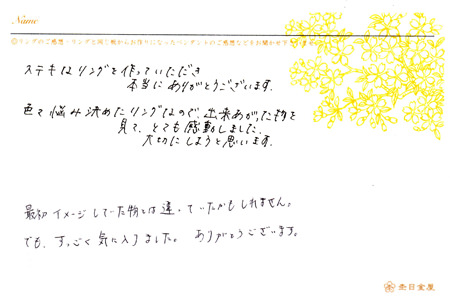 Name
◎リングのご感想・リングと同じ板からお作りになったペンダントのご感想などをお聞かせ下さいませ
ステキなリングを作っていただき
本当にありがとうございます。
色々悩み決めたリングなので、出来あがった物を
見て、とても感動しました。
大切にしようと思います。
最初イメージしていた物とは違っていたかもしれません。
でも、すっごく気に入りました。ありがとうございます。
杢目金屋